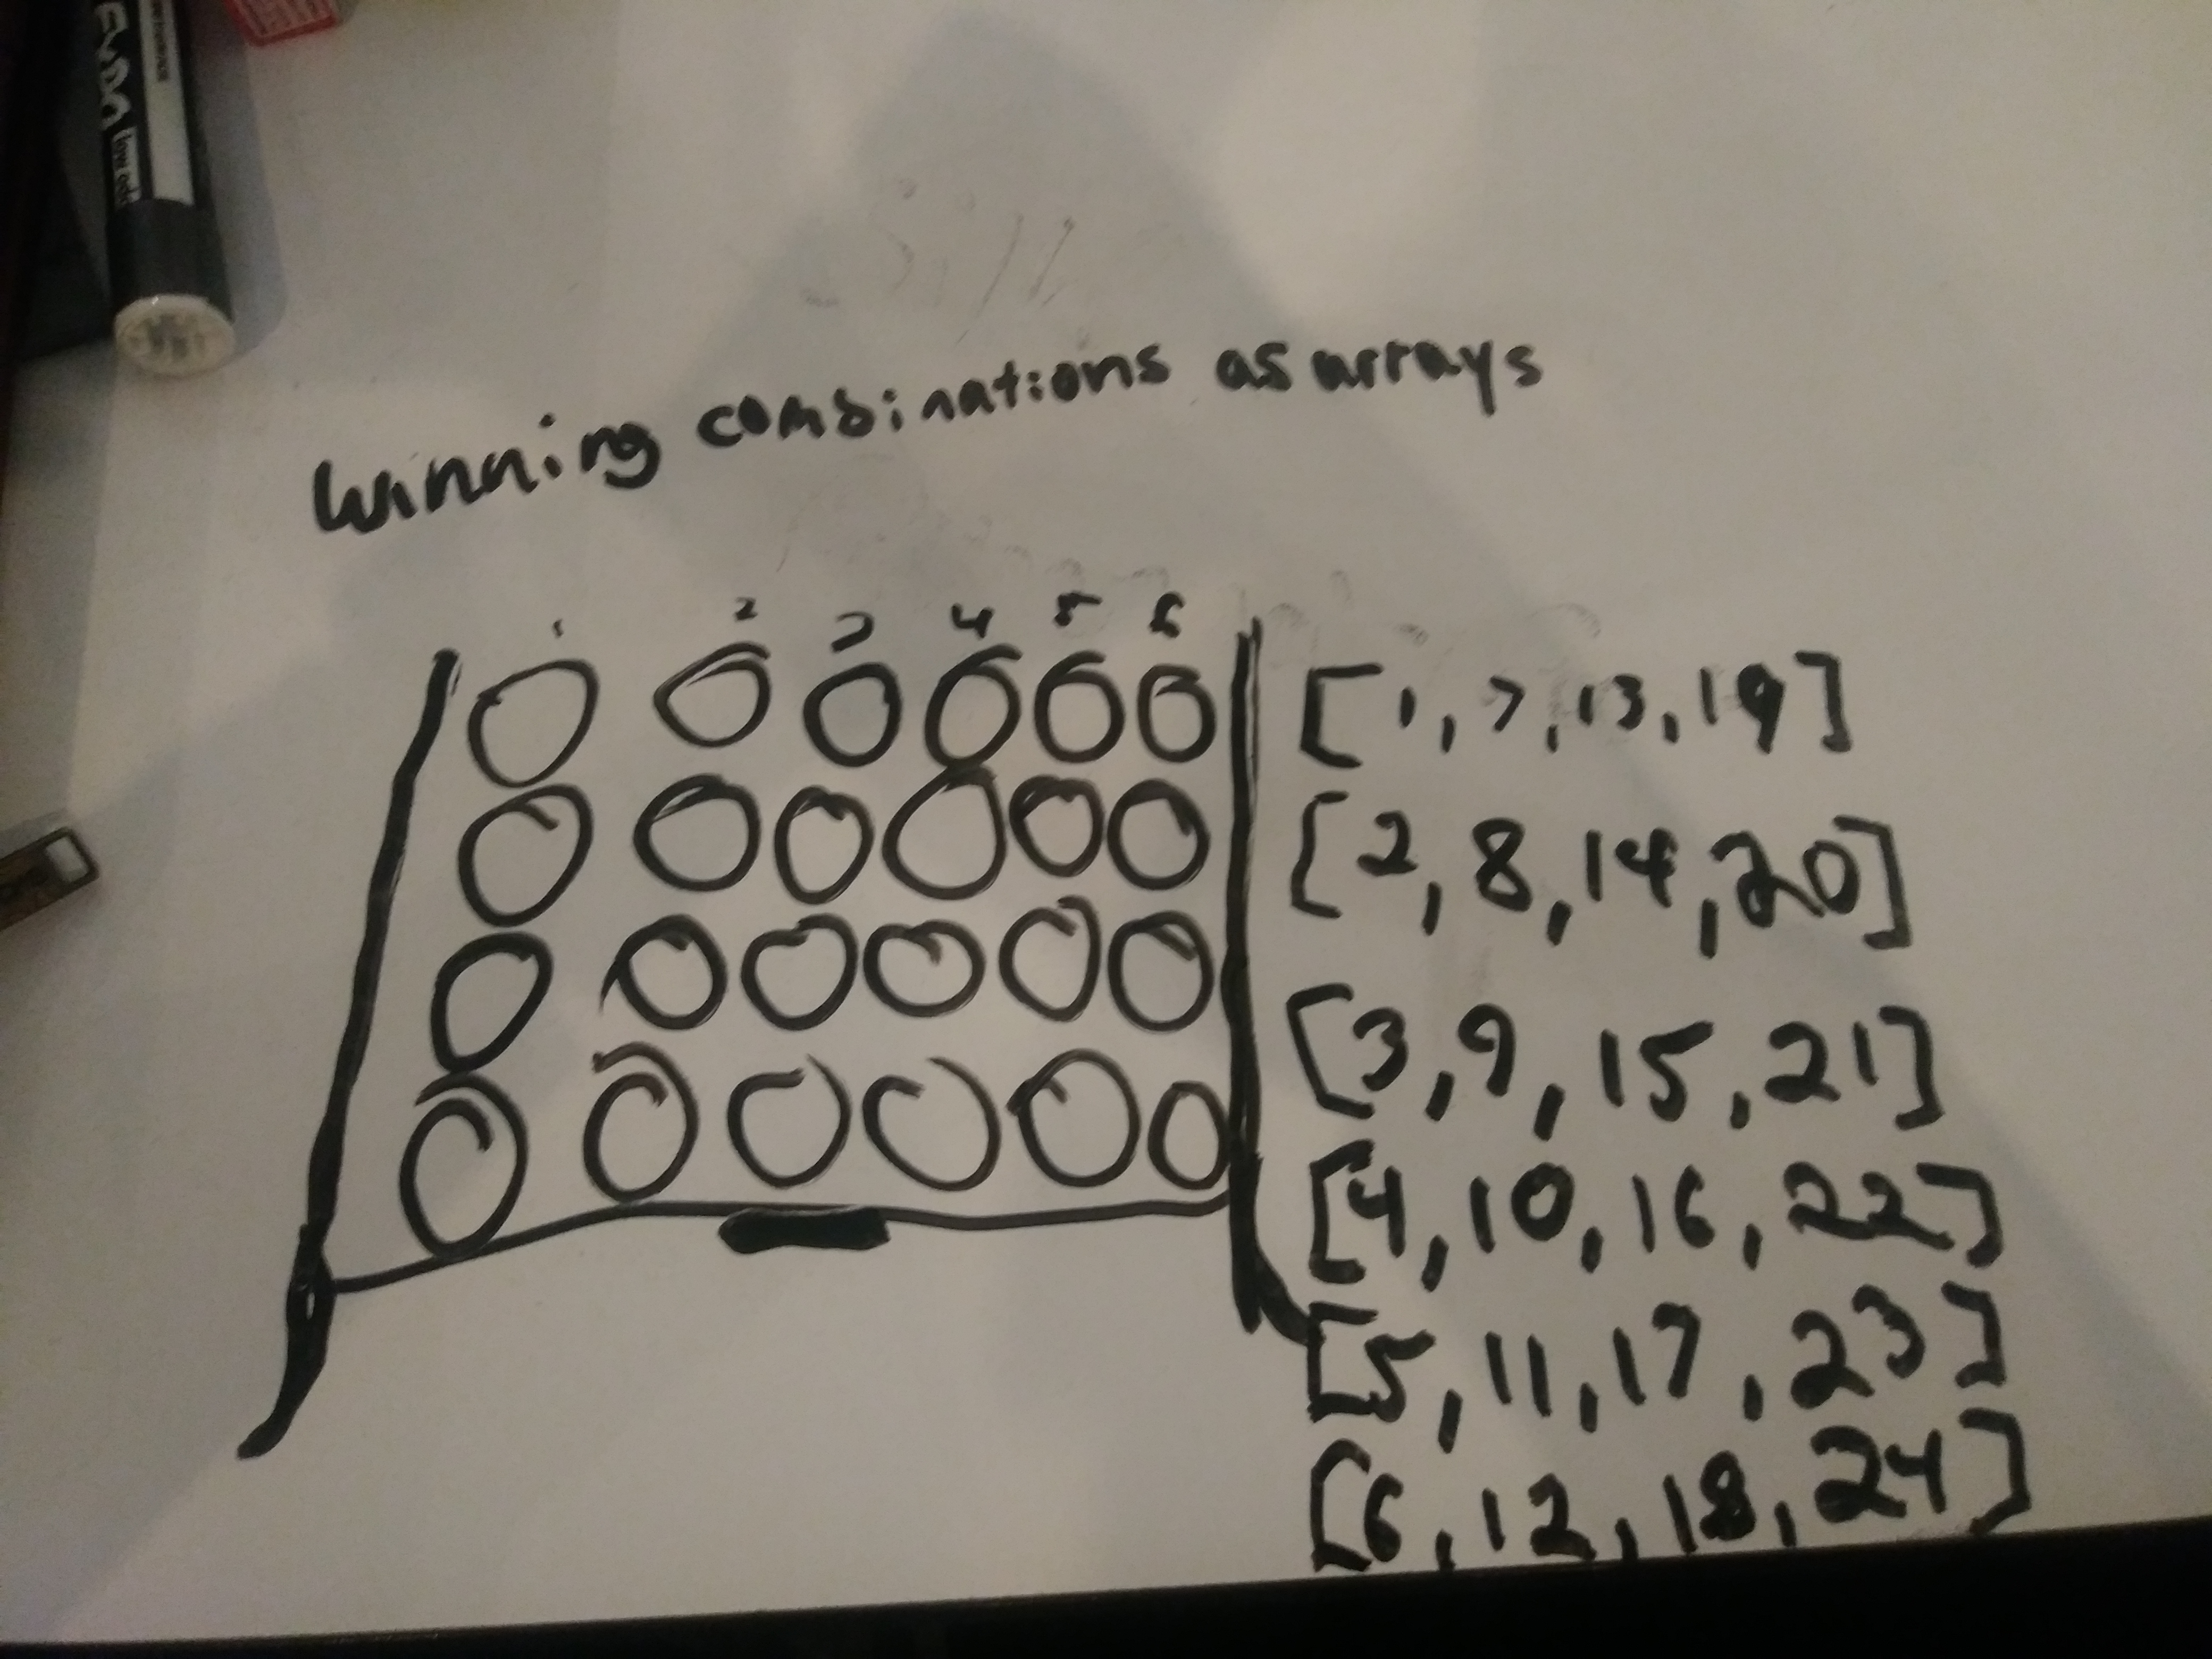 EXPO low odor
winning combinations as arrays
1 2 3 4 5 6
[1, 7, 13, 19]
[2, 8, 14, 20]
[3, 9, 15, 21]
[4, 10, 16, 22]
[5, 11, 17, 23]
[6, 12, 18, 24]